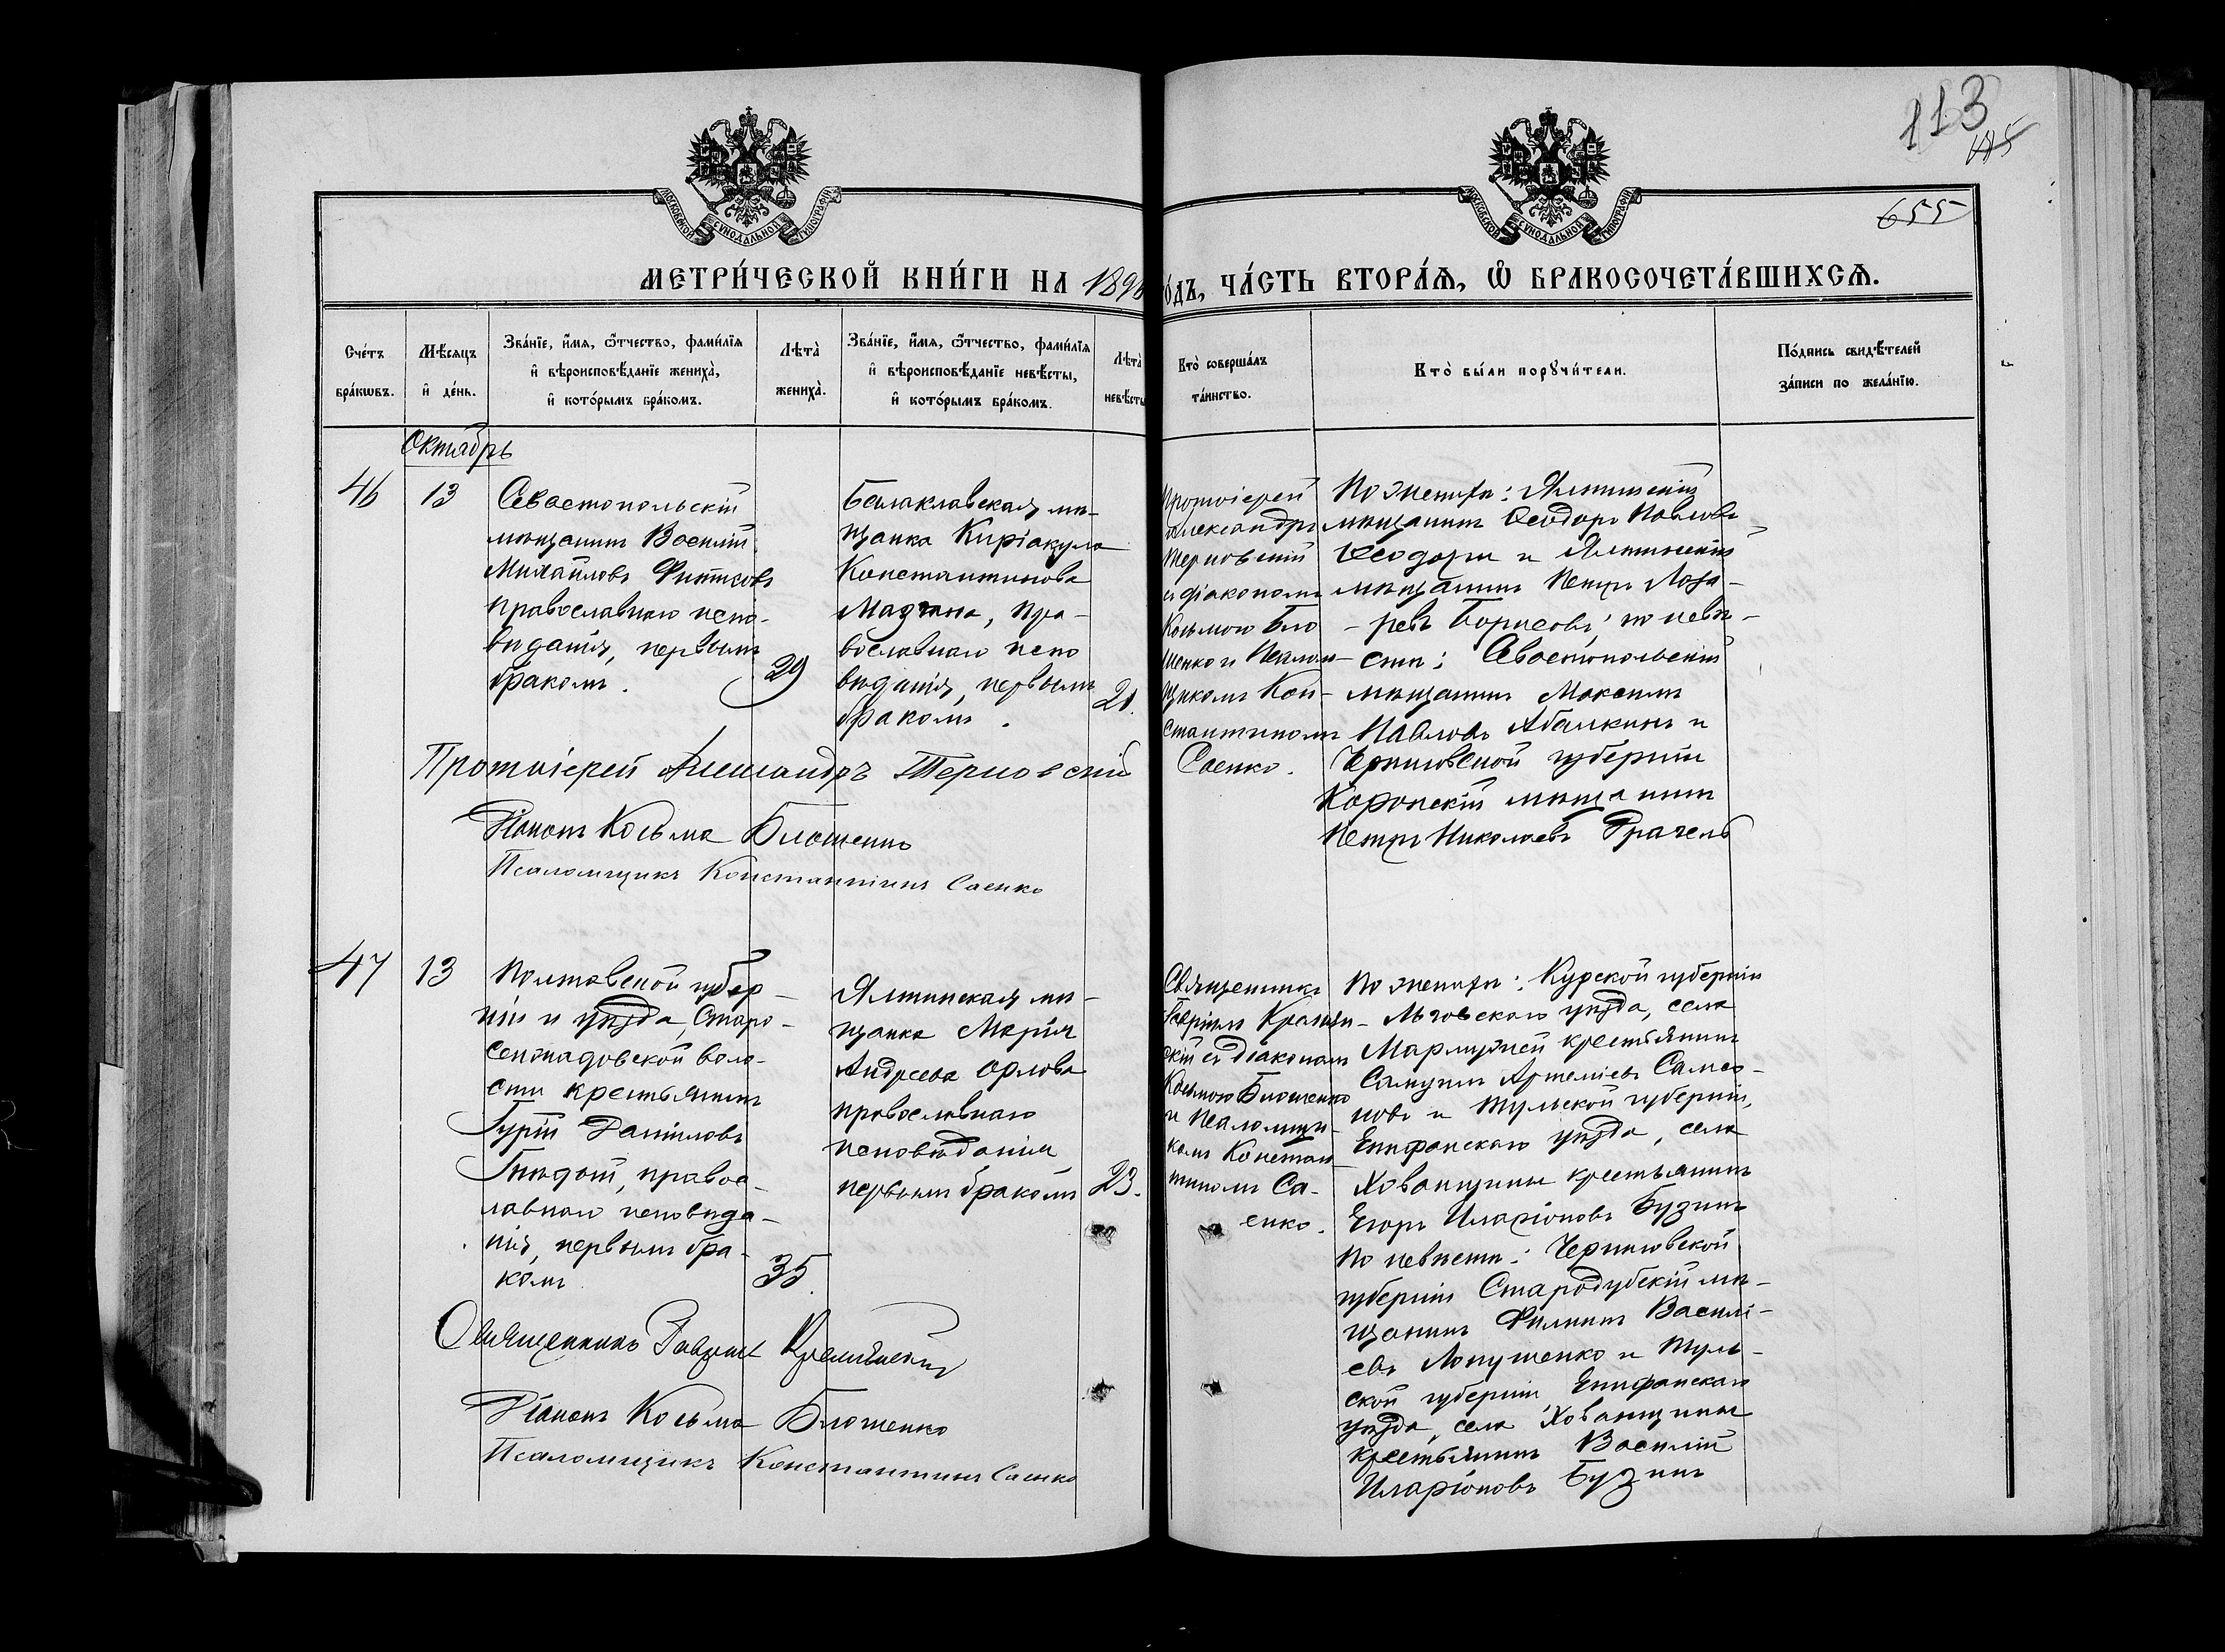 113
655
МОСКОВСКОЙ СѴНОДАЛЬНОЙ ТИПОГРАФІИ
МОСКОВСКОЙ СѴНОДАЛЬНОЙ ТИПОГРАФІИ
МЕТРИ́ЧЕСКОЙ КНИ́ГИ НА 189
О́ДЪ, ЧА́СТЬ ВТОРА́Ѧ, Ѡ҆ БРАКОСОЧЕТА́ВШИХСѦ.
Сче́тъ
бра́кѡвъ.
Мѣ́сяцъ
и҆ де́нь.
Зва́нїе, и҆́мя, ѻ҆́тчество, фами́лїя
и҆ вѣроисповѣ́данїе жениха̀,
и҆ кото́рымъ бра́комъ.
Лѣта̀
жениха̀.
Зва́нїе, и҆́мя, ѻ҆́тчество, фами́лїя
и҆ вѣроисповѣ́данїе невѣ́сты,
и҆ кото́рымъ бра́комъ.
Лѣта̀
невѣ́сты
Кто̀ соверша́лъ
та́инство.
Кто̀ бы́ли порꙋчи́тели.
По́дпись свидѣ́телей
за́писи по жела́нїю.
Октябрь
46
13
Севастопольскій
мѣщанинъ Василій
Михайловъ
православнаго испо-
вѣданія, первымъ
бракомъ.
29
Балаклавская мѣ-
щанка Киріакула
Константинова
православнаго испо
вѣданія, первымъ
бракомъ.
21.
Протоіерей
Александръ
Терновскій
съ діакономъ
Косьмою Бло
шенко и Псалом-
щикомъ Кон-
стантиномъ
Саенко.
По женихѣ: Ялтинскій
мѣщанинъ Ѳеодоръ Павловъ
Ѳеодори и Ялтинскій
мѣщанинъ Петръ Лаза-
-ревъ Борисовъ; по невѣ-
стѣ: Севастопольскій
мѣщанинъ Максимъ
Павловъ Абалкинъ и
Черниговской губерніи
Коропскій мѣщанинъ
Петръ Николаевъ
Протоіерей Александръ Терновскій
Діаконъ Косьма Блошенко
Псаломщикъ Константинъ Саенко
47
13
Полтавской губер-
ніи и уѣзда, Старо-
сенжадовской воло-
сти крестьянинъ
Гурій Даниловъ
Гнѣдой, правос-
лавнаго исповѣда-
нія, первымъ бра-
комъ
35.
Ялтинская мѣ-
щанка Марія
Андреева Орлова
православнаго
исповѣданія
первымъ бракомъ
23.
Священникъ
скій съ діакономъ
Косьмою Блошенко
и Псаломщи-
комъ Констан
тиномъ Са-
енко.
По женихѣ: Курской губерніи
Льговскаго уѣзда, села
Мармыжей крестьянинъ
Самуилъ Артеміевъ Само-
новъ и Тульской губерніи,
Епифанскаго уѣзда, села
Хованщины крестьянинъ
Егоръ Иларіоновъ Бузинъ
По невѣстѣ: Черниговской
губерніи Стародубскій мѣ-
щанинъ Филиппъ Василі-
евъ Лопушенко и Туль-
ской губерніи, Епифанскаго
уѣзда, села Хованщины
крестьянинъ Василій
Иларіоновъ Бузинъ
Священникъ Гавріилъ
Діаконъ Косьма Блошенко
Псаломщикъ Константинъ Саенко